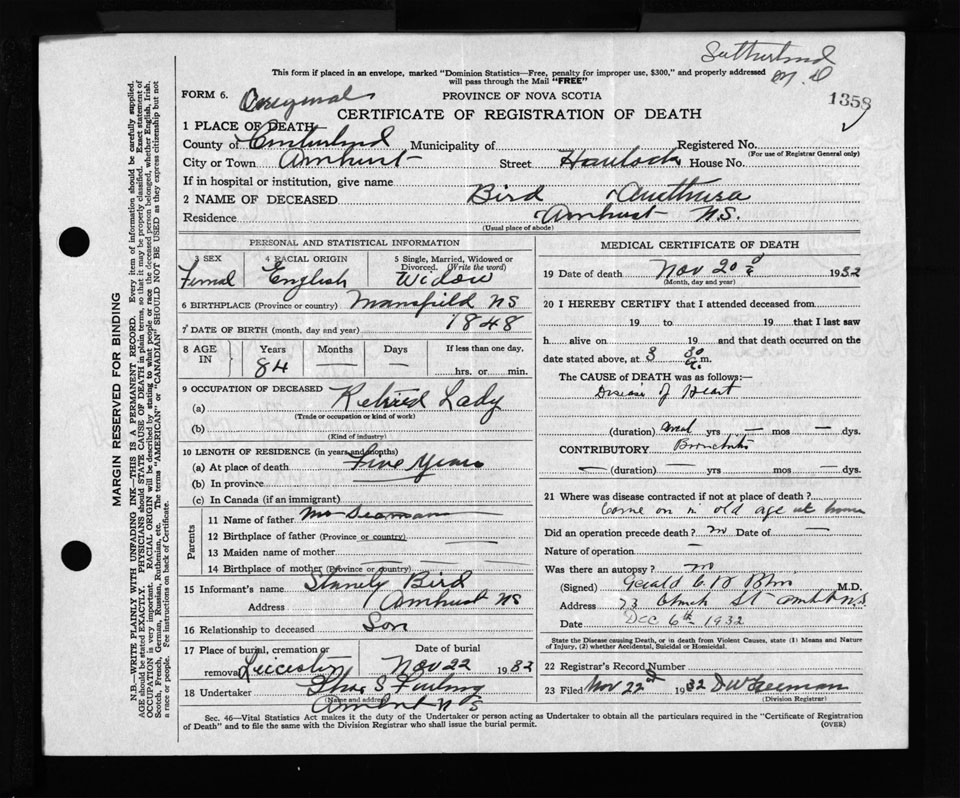 Sutherland
M.D
This form if placed in an envelope, marked "Dominion Statistics—Free, penalty for improper use, $300," and properly addressed
will pass through the Mail "FREE"
1358
FORM 6. Original PROVINCE OF NOVA SCOTIA
CERTIFICATE OF REGISTRATION OF DEATH
1 PLACE OF DEATH
County of Cumberland Municipality of Registered No.
(For use of Registrar General only)
City or Town Amherst Street Havelock House No.
If in hospital or institution, give name
2 NAME OF DECEASED Bird
Residence Amherst N.S.
(Usual place of abode)
PERSONAL AND STATISTICAL INFORMATION
3 SEX 4 RACIAL ORIGIN 5 Single, Married, Widowed or
Divorced. (Write the word)
Femal English Widow
6 BIRTHPLACE (Province or country) Mansfield NS
7 DATE OF BIRTH (month, day and year) 1848
8 AGE IN Years Months Days If less than one day,
84 — — hrs. or min.
9 OCCUPATION OF DECEASED
(a) Retired Lady
(Trade or occupation or kind of work)
(b)
(Kind of industry)
10 LENGTH OF RESIDENCE (in years and months)
(a) At place of death Five Years
(b) In province
(c) In Canada (if an immigrant)
Parents
11 Name of father
12 Birthplace of father (Province or country)
13 Maiden name of mother
14 Birthplace of mother (Province or country)
15 Informant's name Stanely Bird
Address Amherst NS
16 Relationship to deceased Son
17 Place of burial, cremation or Date of burial
removal Nov 22 1932
18 Undertaker
(Name and address)
Amherst N S
MEDICAL CERTIFICATE OF DEATH
19 Date of death Nov 20 1932
(Month, day and year)
20 I HEREBY CERTIFY that I attended deceased from
19 to 19 that I last saw
h alive on 19 and that death occurred on the
date stated above, at 3 30 a.m.
The CAUSE of DEATH was as follows:—
Disease of Heart
(duration) yrs — mos — dys.
CONTRIBUTORY Bronchitis
— (duration) — yrs — mos — dys.
21 Where was disease contracted if not at place of death?
Come on in old age at home
Did an operation precede death? no Date of —
Nature of operation —
Was there an autopsy? no
(Signed) Gerald M.D.
Address 73 Church St Amherst N.S.
Date Dec 6th 1932
State the Disease causing Death, or in death from Violent Causes, state (1) Means and Nature
of Injury, (2) whether Accidental, Suicidal or Homicidal.
22 Registrar's Record Number
23 Filed Nov 22 1932
(Division Registrar)
Sec. 46—Vital Statistics Act makes it the duty of the Undertaker or person acting as Undertaker to obtain all the particulars required in the "Certificate of Registration
of Death" and to file the same with the Division Registrar who shall issue the burial permit. (OVER)
MARGIN RESERVED FOR BINDING
N.B.—WRITE PLAINLY WITH UNFADING INK—THIS IS A PERMANENT RECORD. Every item of information should be carefully supplied.
AGE should be stated EXACTLY. PHYSICIANS should STATE CAUSE OF DEATH in plain terms, so that it may be properly classified. Exact statement of
OCCUPATION is very important. RACIAL ORIGIN will be described by stating to what people or race the deceased person belonged, whether English, Irish,
Scotch, French, German, Russian, Ruthenian, etc. The terms "AMERICAN" or "CANADIAN" SHOULD NOT BE USED as they express citizenship but not
a race or people. See instructions on back of Certificate.